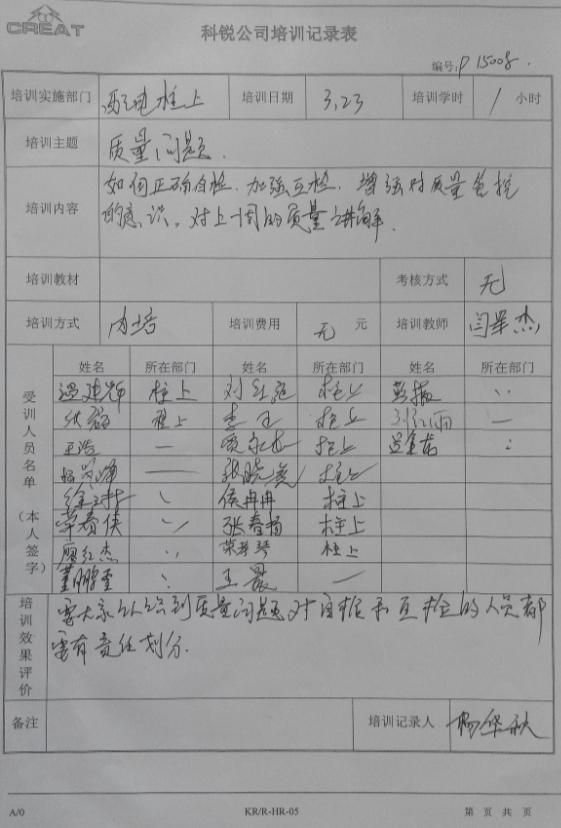 CREAT
科锐公司培训记录表
编号:P 15008.
培训实施部门 配电柱上 培训日期 3.23 培训学时 1 小时
培训主题 质量问题.
培训内容 如何正确自检.加强互检.增强对质量管控
的意识,对上周的质量讲解.
培训教材 考核方式 无
培训方式 内培 培训费用 无 元 培训教师 闫举杰
受训人员名单(本人签字)
姓名 所在部门 姓名 所在部门 姓名 所在部门
温建辉 柱上 刘红 柱上
柱上 李 柱上
王浩 — 贾 柱上
杨 — 张晓 柱上
徐 侯冉冉 柱上
春侠 张春杨 柱上
廖红杰 荣 琴 柱上
董鹏 王晨 —
培训效果评价 要大家认识到质量问题对自检和互检的人员都
要有责任划分.
备注 培训记录人 杨华秋
A/0 KR/R-HR-05 第 页 共 页